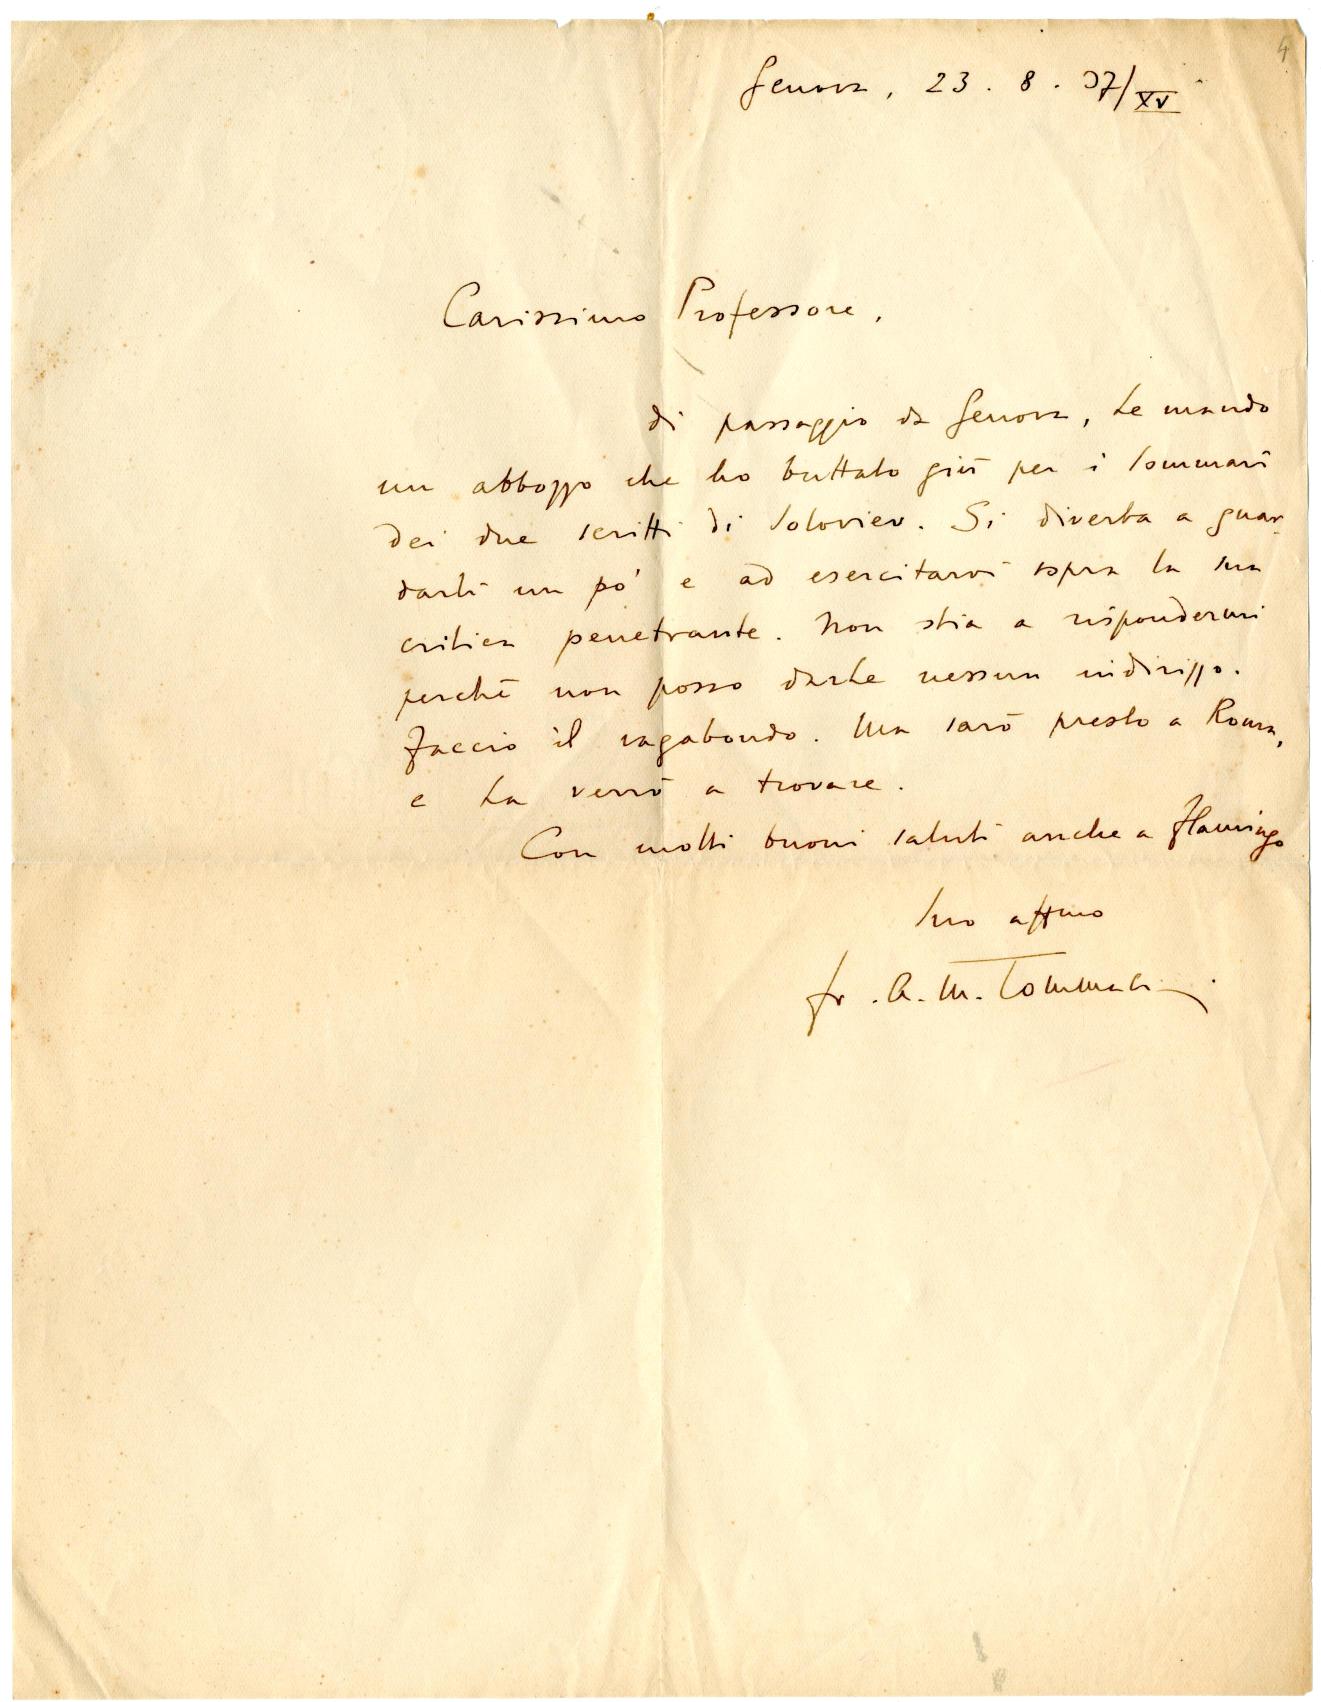 4
Genova, 23. 8. 37/XV
Carissimo Professore,
di passaggio da Genova, Le mando
un abbozzo che ho buttato giù per i sommari
dei due scritti di Soloviev. Si diverta a guar-
darli un po' e ad esercitarvi sopra la sua
critica penetrante. Non stia a rispondermi
perchè non posso darLe nessun indirizzo.
Faccio il vagabondo. Ma sarò presto a Roma,
e La verrò a trovare.
Con molti buoni saluti anche a Flamingo
Suo affmo
fr. A. M. Tommasini